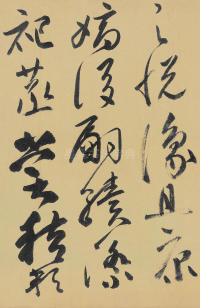 足悅豫且康
嫡後嗣續祭
祀蒸嘗稽顙